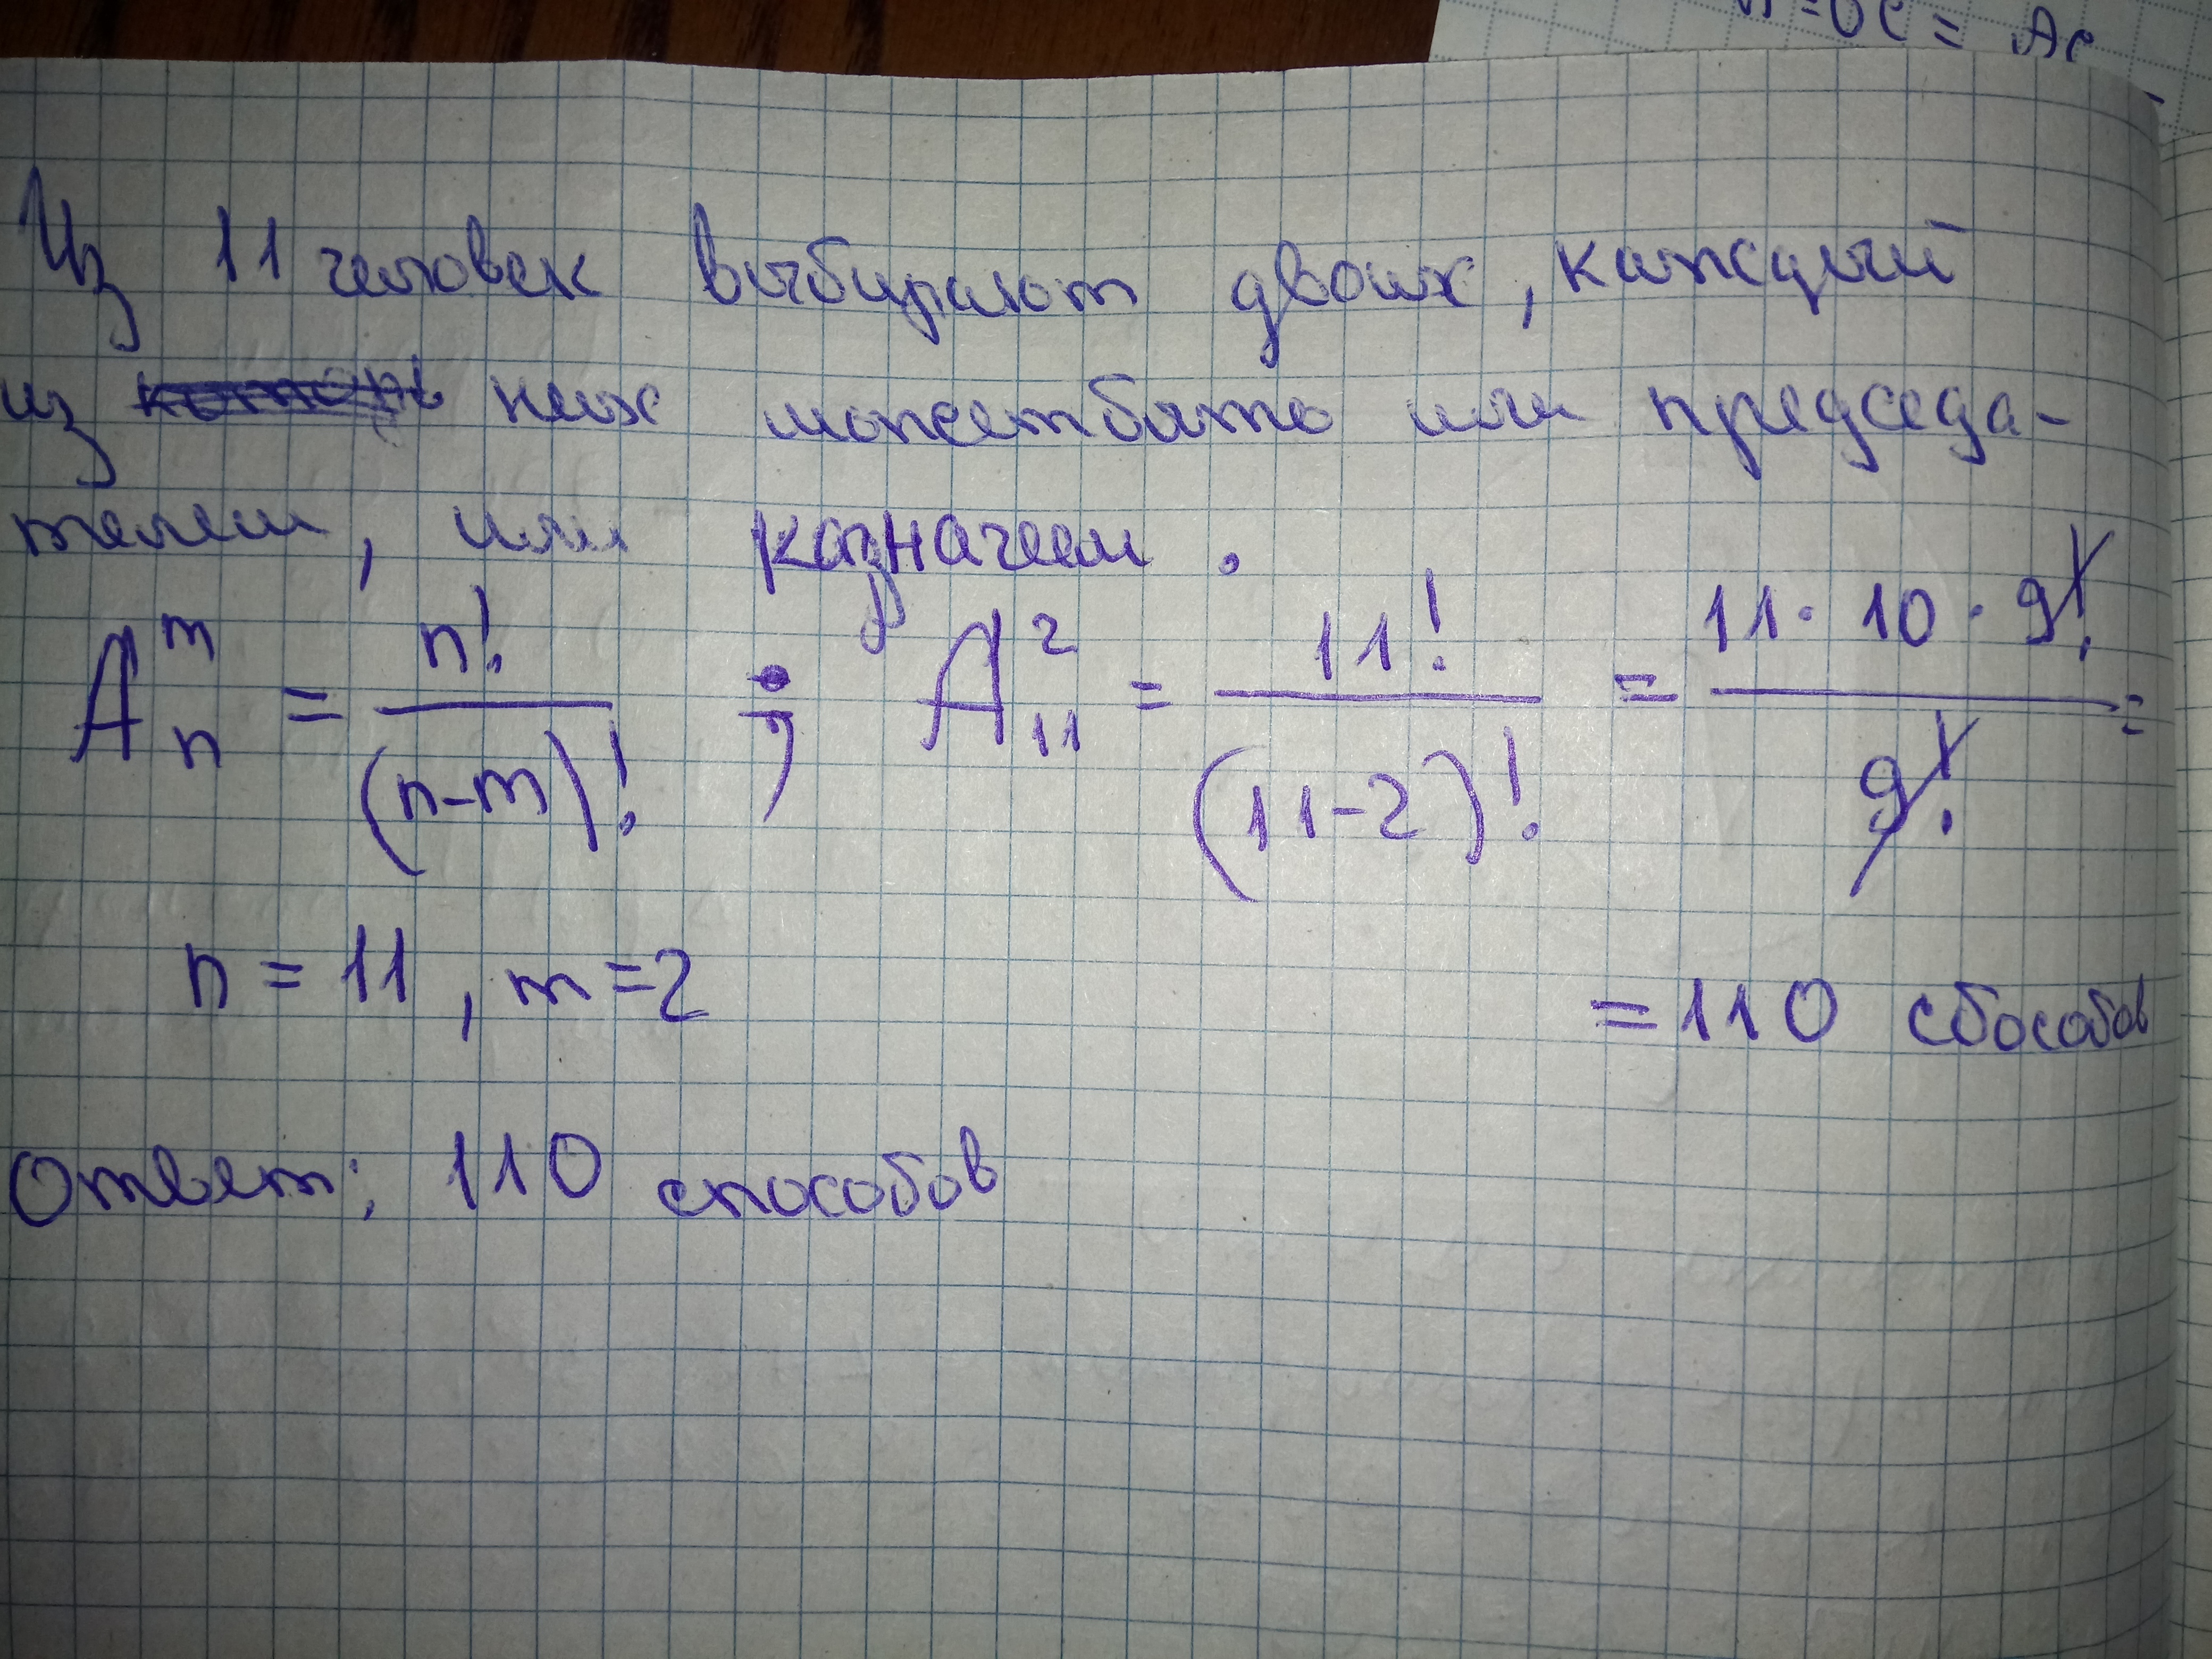 =ОС = АС
Из 11 человек выбирают двоих, каждый
из них может быть или председа-
телем, или казначеем.
A_n^m = n!/(n-m)! ; A_11^2 = 11!/(11-2)! = 11·10·9!/9! =
n = 11, m = 2
= 110 сбособов
Ответ: 110 способов